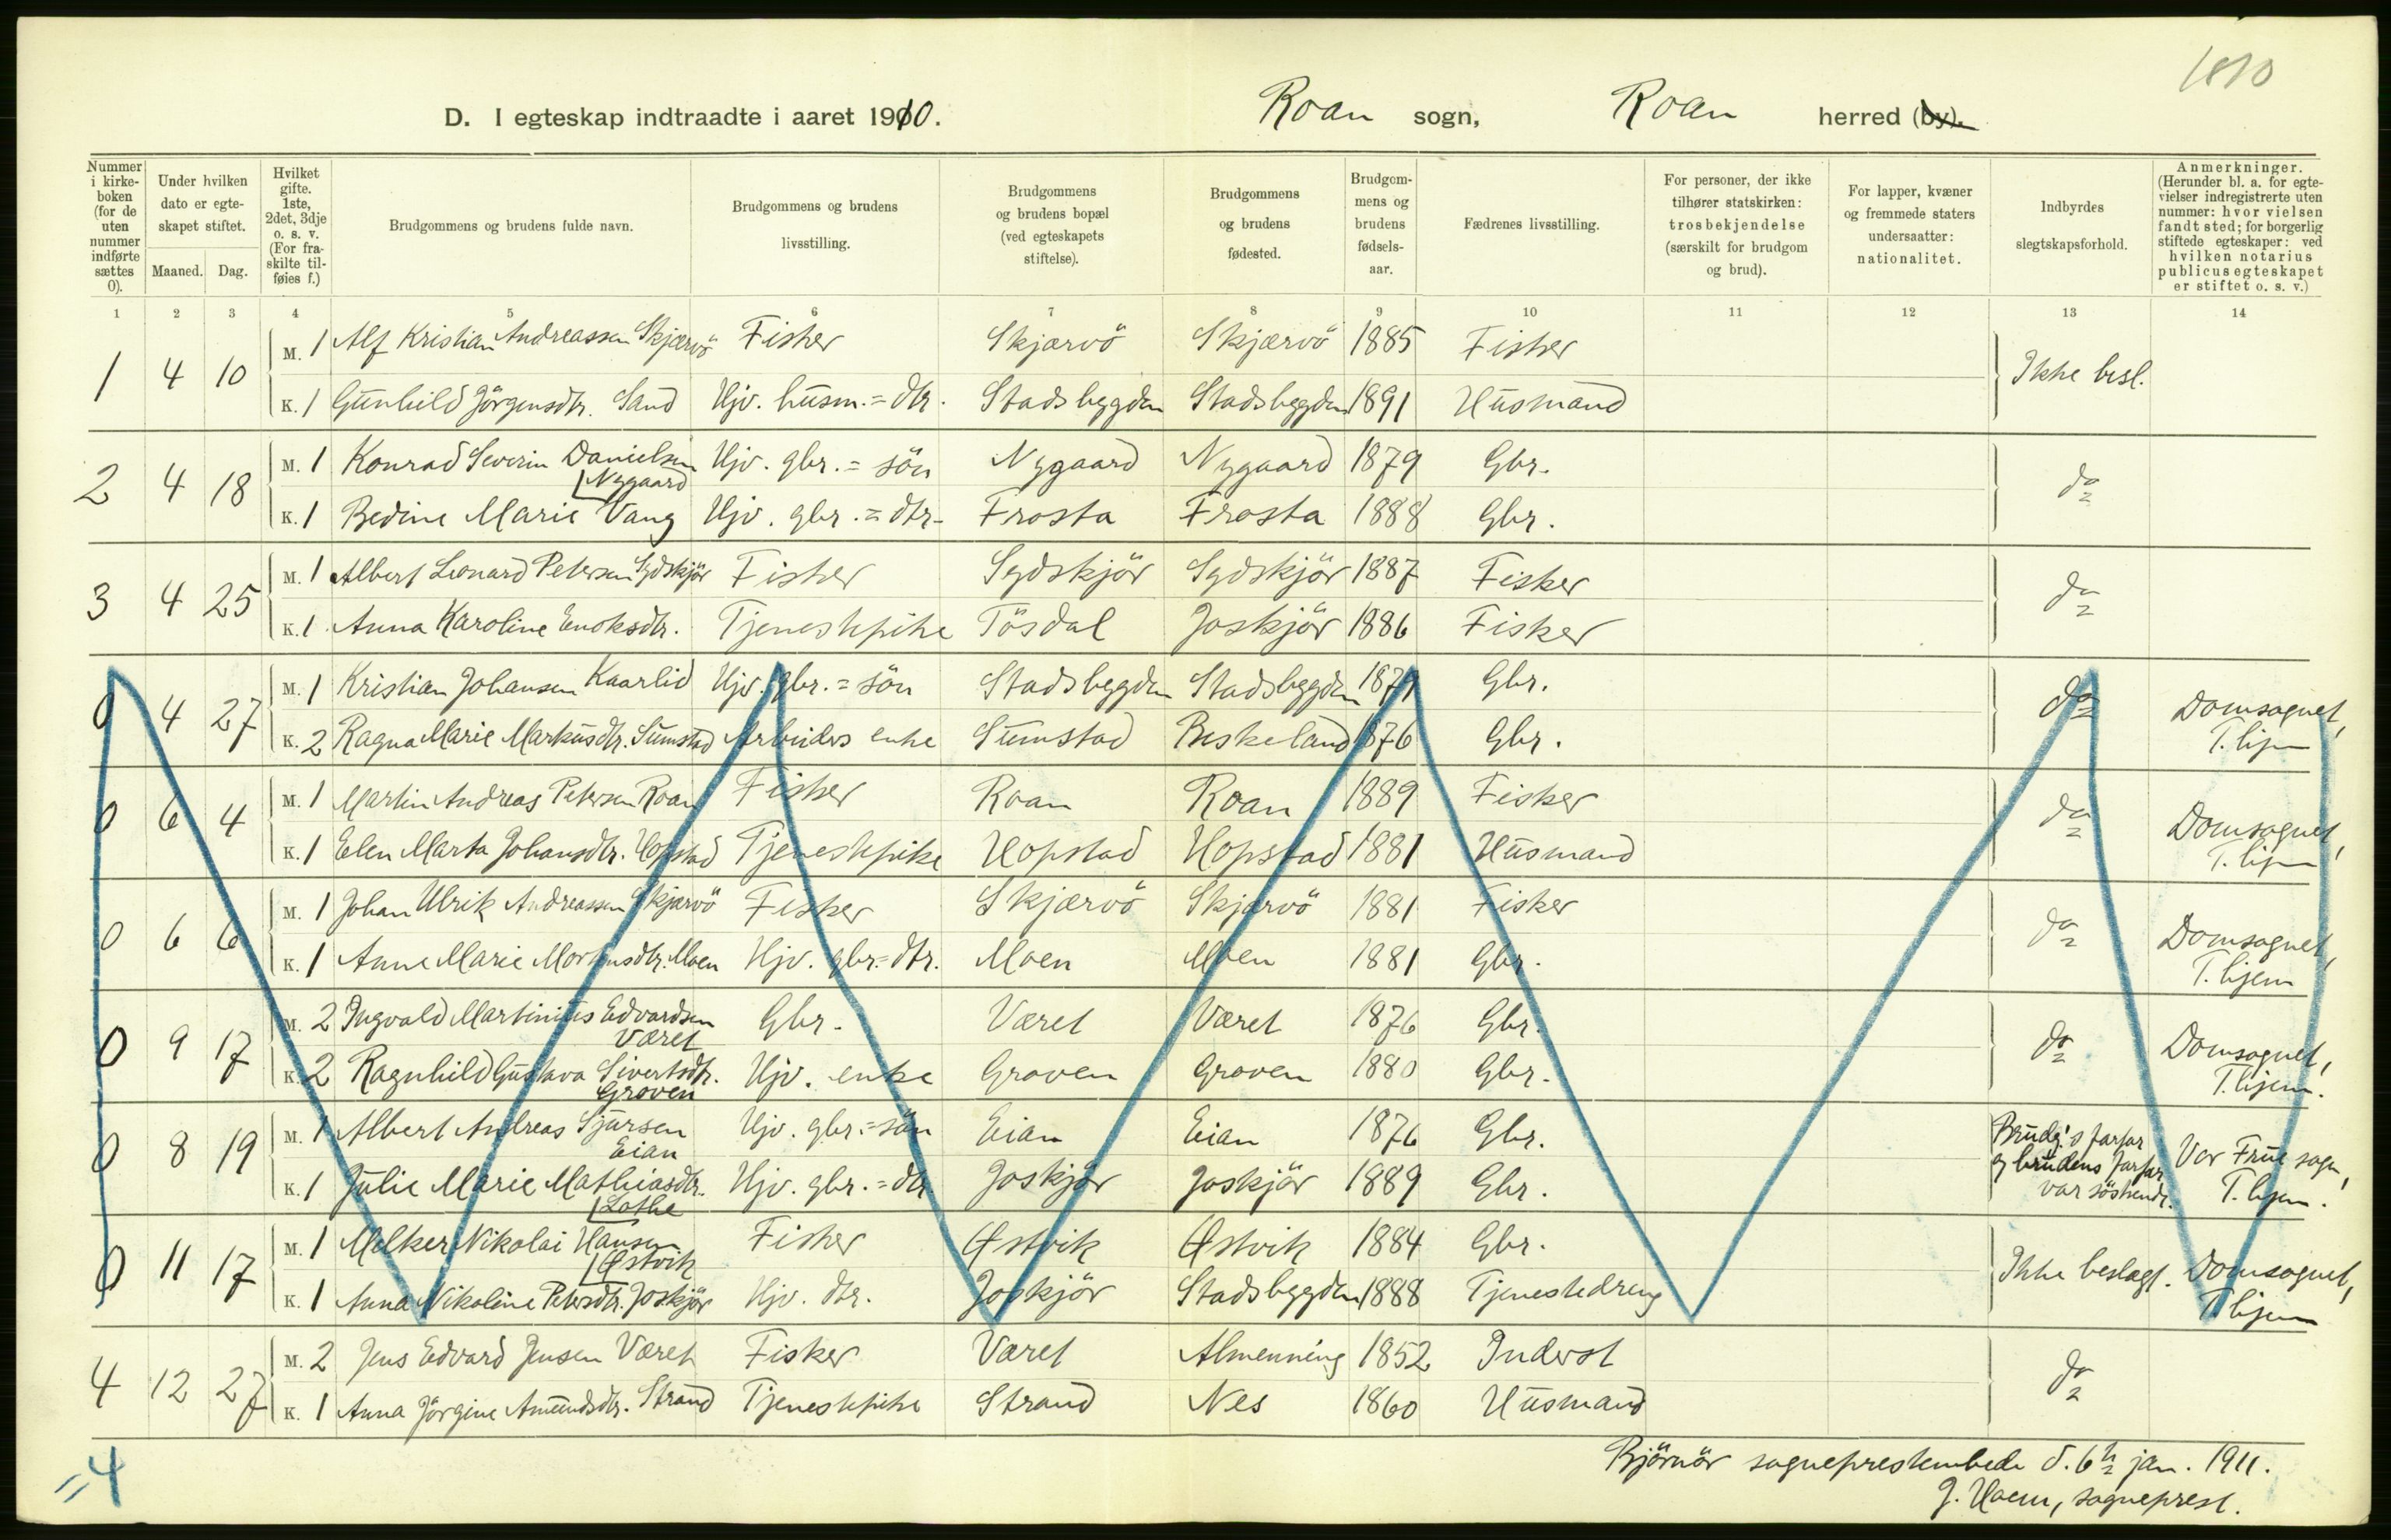 1810
D. I egteskap indtraadte i aaret 1910. Roan sogn, Roan herred (by).
Nummer i kirke-boken (for de uten nummer indførte sættes 0).
Under hvilken dato er egte-skapet stiftet.
Maaned. Dag.
Hvilket gifte. 1ste, 2det, 3dje o. s. v. (For fra-skilte til-føies f.)
Brudgommens og brudens fulde navn.
Brudgommens og brudens livsstilling.
Brudgommens og brudens bopæl (ved egteskapets stiftelse).
Brudgommens og brudens fødested.
Brudgom-mens og brudens fødsels-aar.
Fædrenes livsstilling.
For personer, der ikke tilhører statskirken: trosbekjendelse (særskilt for brudgom og brud).
For lapper, kvæner og fremmede staters undersaatter: nationalitet.
Indbyrdes slegtskapsforhold.
Anmerkninger. (Herunder bl. a. for egte-vielser indregistrerte uten nummer: hvor vielsen fandt sted; for borgerlig stiftede egteskaper: ved hvilken notarius publicus egteskapet er stiftet o. s. v.)
1 2 3 4 5 6 7 8 9 10 11 12 13 14
1 4 10 M. 1 Alf Kristian Andreassen Skjærvö Fisker Skjærvö Skjærvö 1885 Fisker Ikke besl.
K. 1 Gunhild Jörgensdtr. Sand Hjv. husm.=dtr. Stadsbygden Stadsbygden 1891 Husmand
2 4 18 M. 1 Konrad Severin Danielsen Nygaard Hjv. gbr.=sön Nygaard Nygaard 1879 Gbr. do
K. 1 Bedine Marie Vang Hjv. gbr.=dtr. Frosta Frosta 1888 Gbr.
3 4 25 M. 1 Albert Leonard Petersen Sydskjör Fisker Sydskjör Sydskjör 1887 Fisker do
K. 1 Anna Karoline Enoksdtr. Tjenestepike Tösdal Joskjör 1886 Fisker
0 4 27 M. 1 Kristian Johansen Kaarlid Hjv. gbr.=sön Stadsbygden Stadsbygden 1879 Gbr. do Domsognet, T.hjem
K. 2 Ragna Marie Markusdtr. Sumstad Arbeiders enke Sumstad Beskeland 1876 Gbr.
0 6 4 M. 1 Martin Andreas Petersen Roan Fisker Roan Roan 1889 Fisker do Domsognet, T.hjem
K. 1 Elen Marta Johansdtr. Hopstad Tjenestepike Hopstad Hopstad 1881 Husmand
0 6 6 M. 1 Johan Ulrik Andreassen Skjærvö Fisker Skjærvö Skjærvö 1881 Fisker do Domsognet, T.hjem
K. 1 Anne Marie Mortensdtr. Moen Hjv. gbr.=dtr. Moen Moen 1881 Gbr.
0 9 17 M. 2 Ingvald Martinius Edvardsen Været Gbr. Været Været 1876 Gbr. do Domsognet, T.hjem.
K. 2 Ragnhild Gustava Sivertsdtr. Groven Hjv. enke Groven Groven 1880 Gbr.
0 8 19 M. 1 Albert Andreas Sjursen Eian Hjv. gbr.=sön Eian Eian 1876 Gbr. Brudg.'s farfar og brudens farfar var söskende. Vor Frue sogn, T.hjem.
K. 1 Julie Marie Mathiasdtr. Lothe Hjv. gbr.=dtr Joskjör Joskjör 1889 Gbr.
0 11 17 M. 1 Melker Nikolai Hansen Østvik Fisker Østvik Østvik 1884 Gbr. Ikke beslægt. Domsognet, T.hjem
K. 1 Anna Nikoline Petersdtr. Joskjör Hjv. dtr. Joskjör Stadsbygden 1888 Tjenestedreng
4 12 27 M. 2 Jens Edvard Jensen Været Fisker Været Almenning 1852 Inderst do
K. 1 Anna Jörgine Amundsdtr. Strand Tjenestepike Strand Nes 1860 Husmand
=4
Björnör sogneprestembede d. 6te jan. 1911.
J. Hoem, sogneprest.